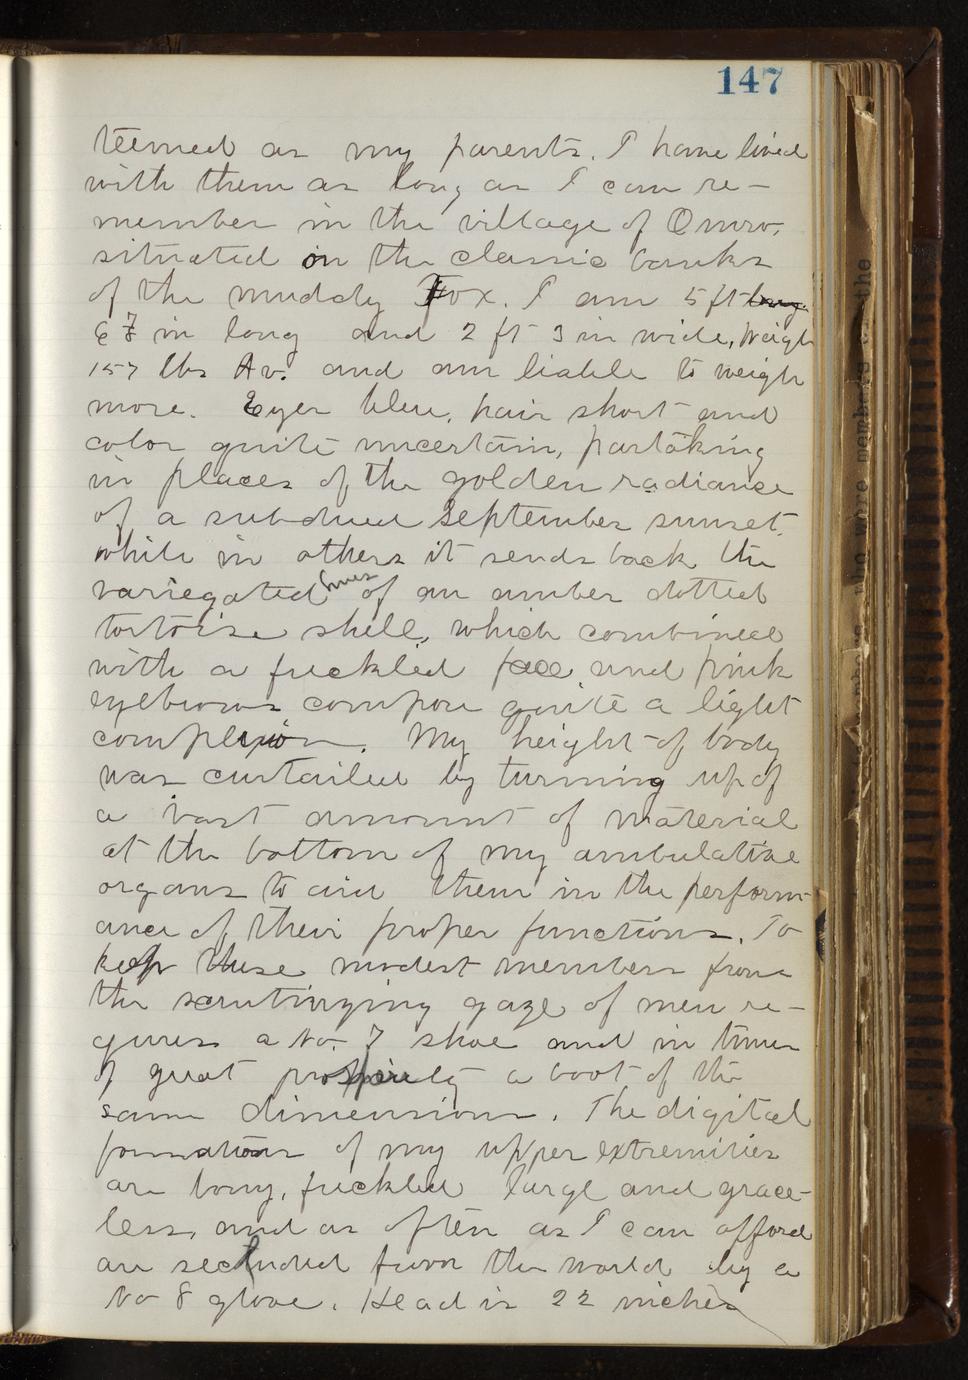 147
teemed as my parents. I have lived
with them as long as I can re-
member in the village of Omro,
situated on the classic banks
of the muddy Fox. I am 5 ft long
6 7/8 in long and 2 ft 3 in wide, Weigh
157 lbs Av. and am liable to weigh
more. Eyes blue, hair short and
color quite uncertain, partaking
in places of the golden radiance
of a subdued September sunset,
while in others it sends back the
variegated hues of an amber dotted
tortoise shell, which combined
with a freckled face and pink
eyebrows compose quite a light
complexion. My height of body
was curtailed by turning up of
a vast amount of material
at the bottom of my ambulative
organs to aid them in the perform-
ance of their proper functions. To
keep these modest members from
the scrutinzing gaze of men re-
quires a No. 7 shoe and in times
of great prosperity a boot of the
same dimensions. The digital
formations of my upper extremities
are bony, freckled large and grace-
less, and as often as I can afford
are secluded from the world by a
No 8 glove. Head is 22 inches
who were members
the